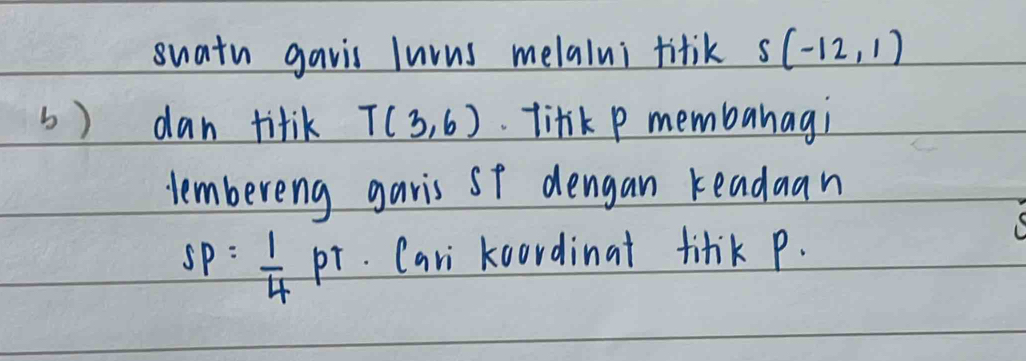 suatu garis lurus melalui titik S(-12, 1)
b) dan titik T(3, 6). Titik P membahagi
tembereng garis ST dengan keadaan
SP = 1/4 PT. Cari koordinat titik P.